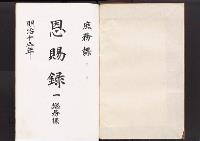 庶務課
恩賜録 一 総務課
明治十五年